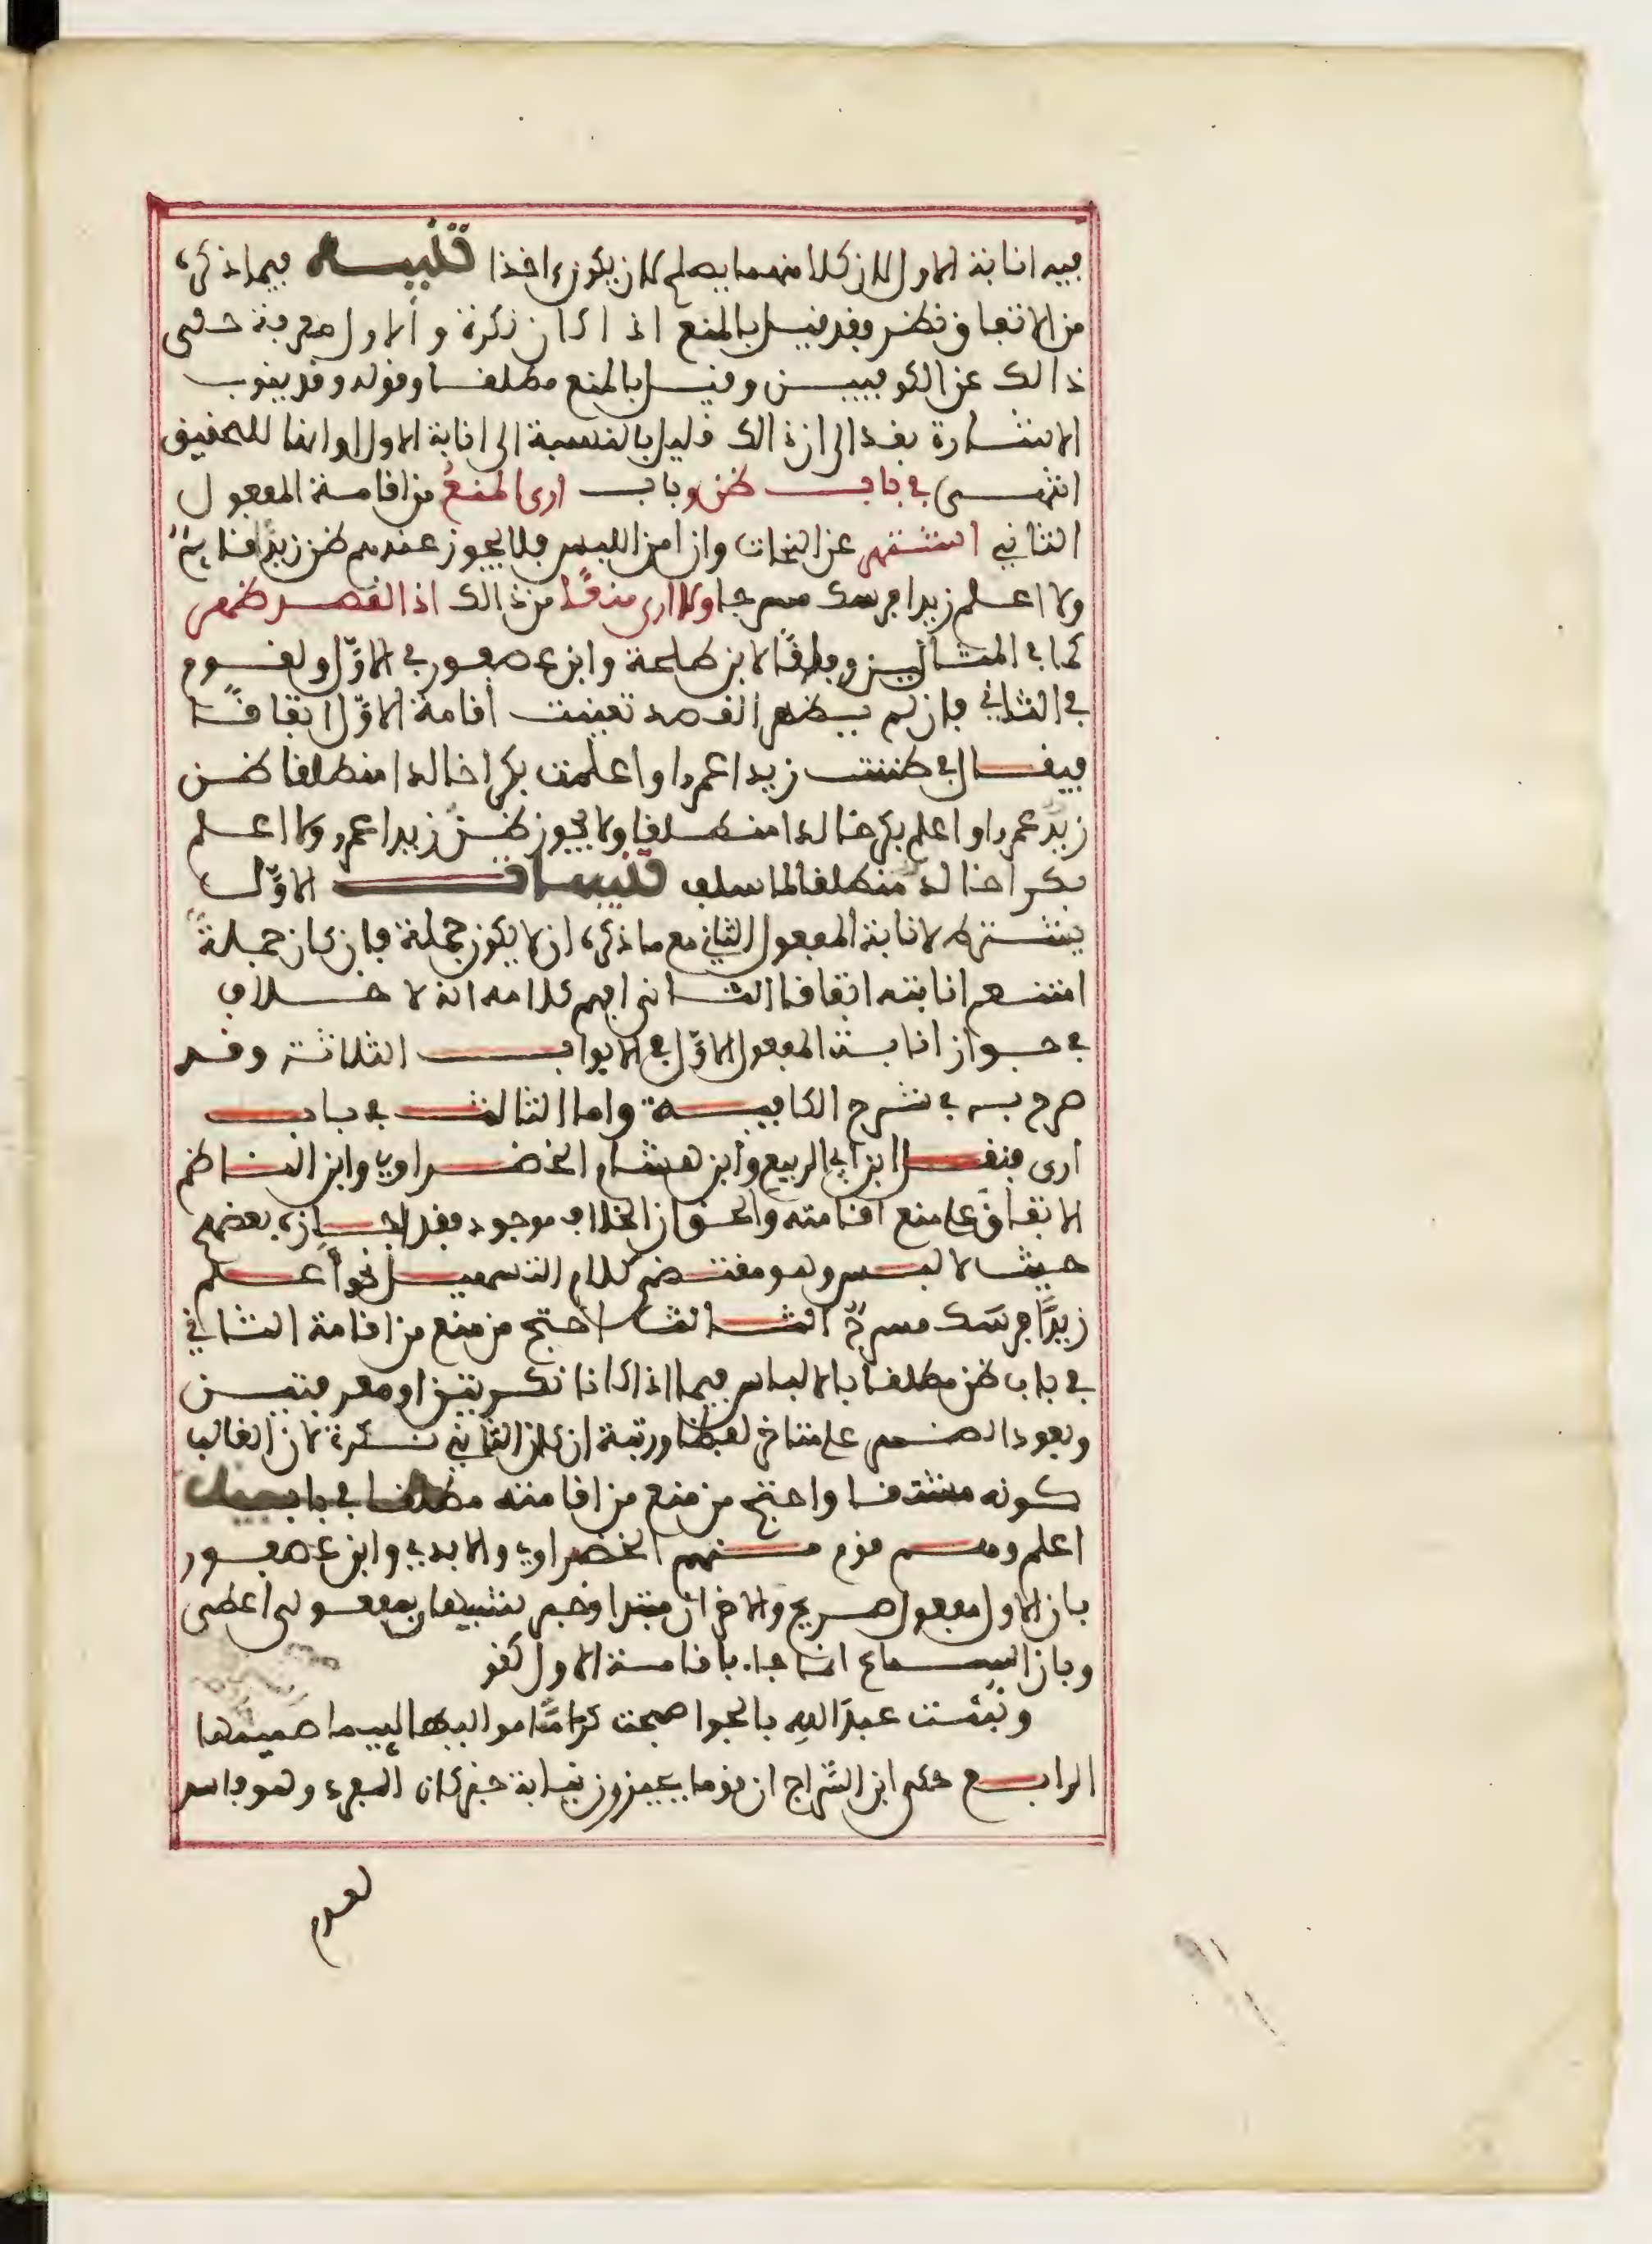 فيه انابة الاول لان كلا منهما يصلح لان يكون ءاخذا تنبيه فيما ذكره
من الاتفاق نظر فقد قيل بالمنع اذا كان نكرة والاول معرفة حكى
ذالك عن الكوفيين وقيل بالمنع مطلقا وقوله وقد ينوب
الاشارة بقد الى ان ذالك قليل بالنسبة الى انابة الاول او انها للتحقيق
انتهى في باب ظن وباب ارى المنع من اقامة المفعول
الثاني اشتهر عن النحات وان امن اللبس فلا يجوز عندهم ظن زيدا قايم
ولا اعلم زيدا فرسك مسرجا ولا ارى منعًا من ذالك اذا القصد ظهر
كما في المثالين وفاقًا لابن طلحة وابن عصفور في الاول ولقوم
في الثاني فان لم يظهر القصد تعينت اقامة الاول اتفاقًا
فيقال في ظننت زيدا عمرا واعلمت بكرا خالدا منطلقا ظن
زيد عمرا واعلم بكر خالدا منطلقا ولا يجوز ظن زيدا عمرو ولا اعلم
بكرا خالد منطلقا لما سلف تنبيهات الاول
يشترط لانابة المفعول الثاني مع ما ذكره ان لا يكون جملة فان كان جملة
امتنع انابته اتفاقا الثاني افهم كلامه انه لا خلاف
في جواز انابة المفعول الاول في الابواب الثلاثة وقد
صرح به في شرح الكافية واما الثالث في باب
ارى فنقل ابن ابي الربيع وابن هشام الخضراوي وابن الناظم
الاتفاق على منع اقامته والحق ان الخلاف موجود فقد اجازه بعضهم
حيث لا لبس وهو مقتضى كلام التسهيل نحو اعلم
زيدًا فرسك مسرج الثالث احتج من منع من اقامة الثاني
في باب ظن مطلقا بالالباس فيما اذا كانا نكرتين او معرفتين
وبعود الضمير على متاخر لفظا ورتبة ان كان الثاني نكرة لان الغالب
كونه مشتقا واحتج من منع من اقامته مطلقا في باب
اعلم وهم قوم منهم الخضراوي والابدي وابن عصفور
بان الاول مفعول صريح والاخران مبتدا وخبر شبيها بمفعولى اعطى
وبان السماع انما جاء باقامة الاول كقو
ونبئت عبدَ اللهِ بالجوا صبحت كرامًا مواليها لئيما صميمها
الرابع حكى ابن السراج ان قوما يجيزون نيابة خبر كان المفرد وهو فاسد
لعدم